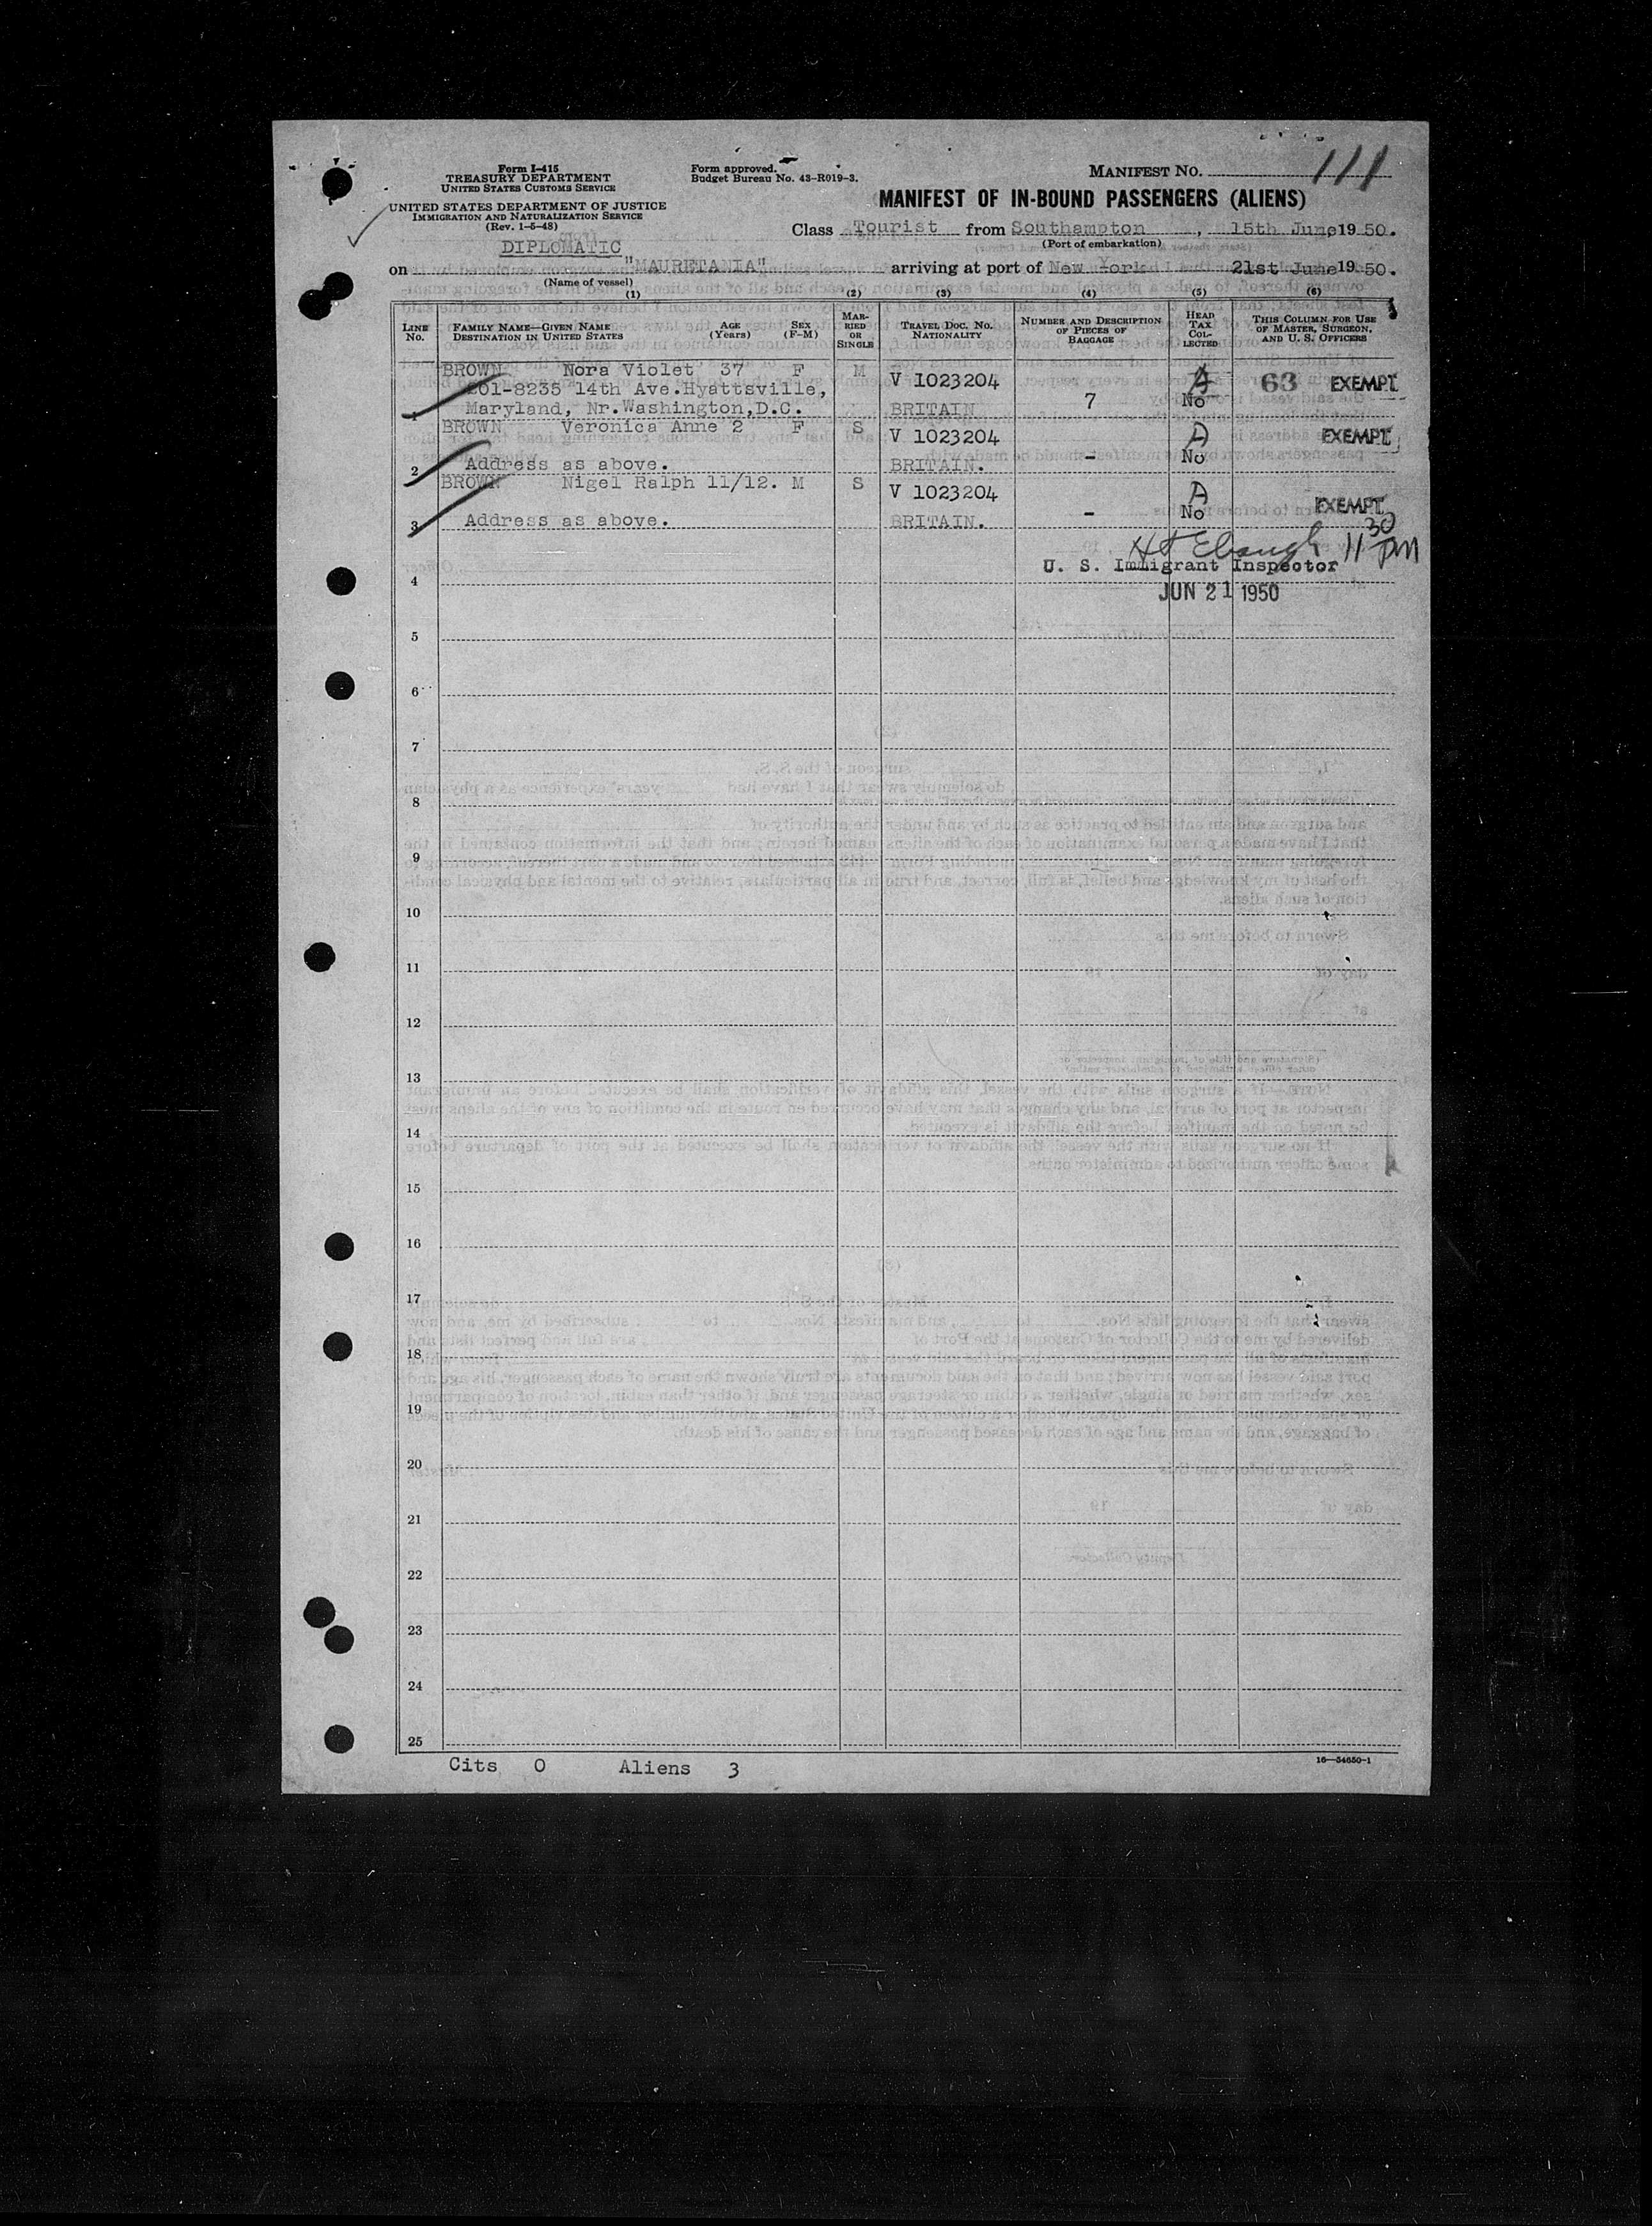 Form I-415
TREASURY DEPARTMENT
UNITED STATES CUSTOMS SERVICE
UNITED STATES DEPARTMENT OF JUSTICE
IMMIGRATION AND NATURALIZATION SERVICE
(Rev. 1-5-48)
Form approved.
Budget Bureau No. 43-R019-3.
MANIFEST NO. 111
MANIFEST OF IN-BOUND PASSENGERS (ALIENS)
Class Tourist from Southampton, 15th June 1950.
(Port of embarkation)
DIPLOMATIC
on "MAURETANIA" arriving at port of New York 21st June 1950.
(Name of vessel)
(1) (2) (3) (4) (5) (6)
LINE NO. FAMILY NAME—GIVEN NAME DESTINATION IN UNITED STATES AGE (Years) SEX (F-M) MARRIED OR SINGLE TRAVEL DOC. NO. NATIONALITY NUMBER AND DESCRIPTION OF PIECES OF BAGGAGE HEAD TAX COLLECTED THIS COLUMN FOR USE OF MASTER, SURGEON, AND U. S. OFFICERS
BROWN Nora Violet 37 F M V 1023204 A 63 EXEMPT
201-8235 14th Ave.Hyattsville,
1 Maryland, Nr.Washington,D.C. BRITAIN 7 No
BROWN Veronica Anne 2 F S V 1023204 A EXEMPT
2 Address as above. BRITAIN. - No
BROWN Nigel Ralph 11/12. M S V 1023204 A EXEMPT
3 Address as above. BRITAIN. - No
11 30 PM
U. S. Immigrant Inspector
4 JUN 21 1950
5
6
7
8
9
10
11
12
13
14
15
16
17
18
19
20
21
22
23
24
25
Cits 0 Aliens 3
16—54650-1